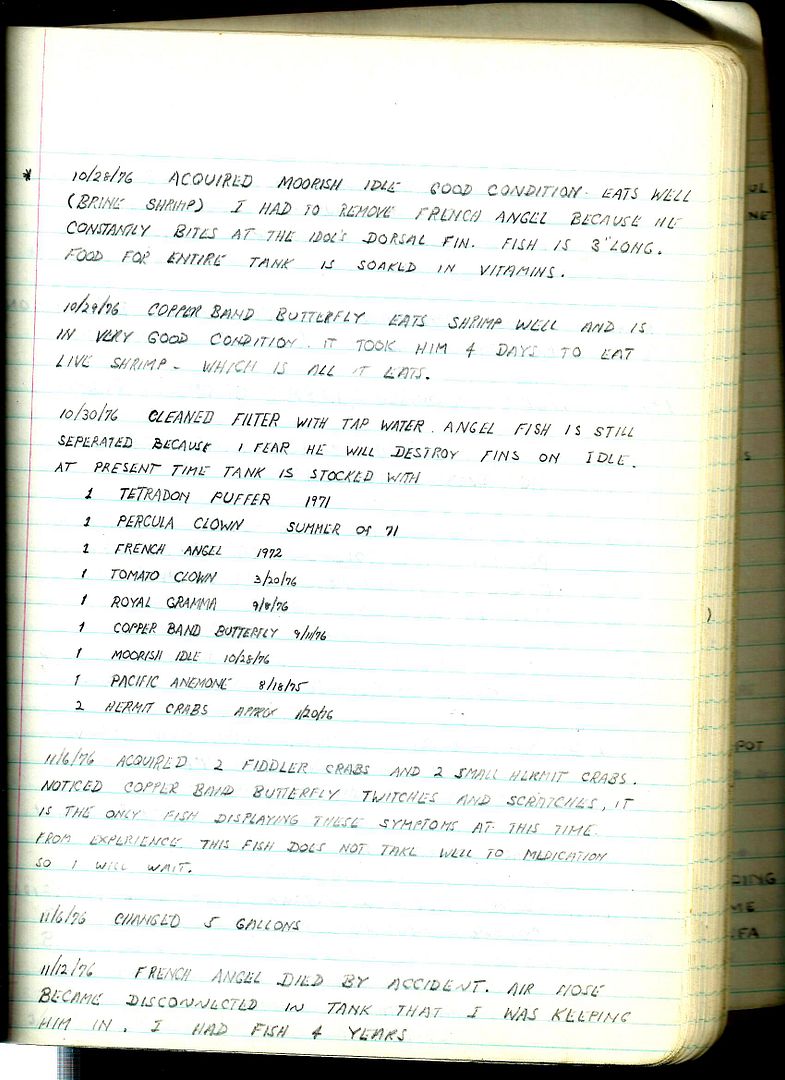 * 10/28/76 ACQUIRED MOORISH IDLE GOOD CONDITION EATS WELL
(BRINE SHRIMP) I HAD TO REMOVE FRENCH ANGEL BECAUSE HE
CONSTANTLY BITES AT THE IDOL'S DORSAL FIN. FISH IS 3" LONG.
FOOD FOR ENTIRE TANK IS SOAKED IN VITAMINS.
10/29/76 COPPER BAND BUTTERFLY EATS SHRIMP WELL AND IS
IN VERY GOOD CONDITION. IT TOOK HIM 4 DAYS TO EAT
LIVE SHRIMP - WHICH IS ALL IT EATS.
10/30/76 CLEANED FILTER WITH TAP WATER. ANGEL FISH IS STILL
SEPERATED BECAUSE I FEAR HE WILL DESTROY FINS ON IDLE.
AT PRESENT TIME TANK IS STOCKED WITH
1 TETRADON PUFFER 1971
1 PERCULA CLOWN SUMMER OF 71
1 FRENCH ANGEL 1972
1 TOMATO CLOWN 3/20/76
1 ROYAL GRAMMA 9/8/76
1 COPPER BAND BUTTERFLY 9/11/76
1 MOORISH IDLE 10/28/76
1 PACIFIC ANEMONE 8/18/75
2 HERMIT CRABS APPROX 1/20/76
11/6/76 ACQUIRED 2 FIDDLER CRABS AND 2 SMALL HERMIT CRABS.
NOTICED COPPER BAND BUTTERFLY TWITCHES AND SCRATCHES, IT
IS THE ONLY FISH DISPLAYING THESE SYMPTOMS AT THIS TIME.
FROM EXPERIENCE THIS FISH DOES NOT TAKE WELL TO MEDICATION
SO I WILL WAIT.
11/6/76 CHANGED 5 GALLONS
11/12/76 FRENCH ANGEL DIED BY ACCIDENT. AIR HOSE
BECAME DISCONNECTED IN TANK THAT I WAS KEEPING
HIM IN. I HAD FISH 4 YEARS